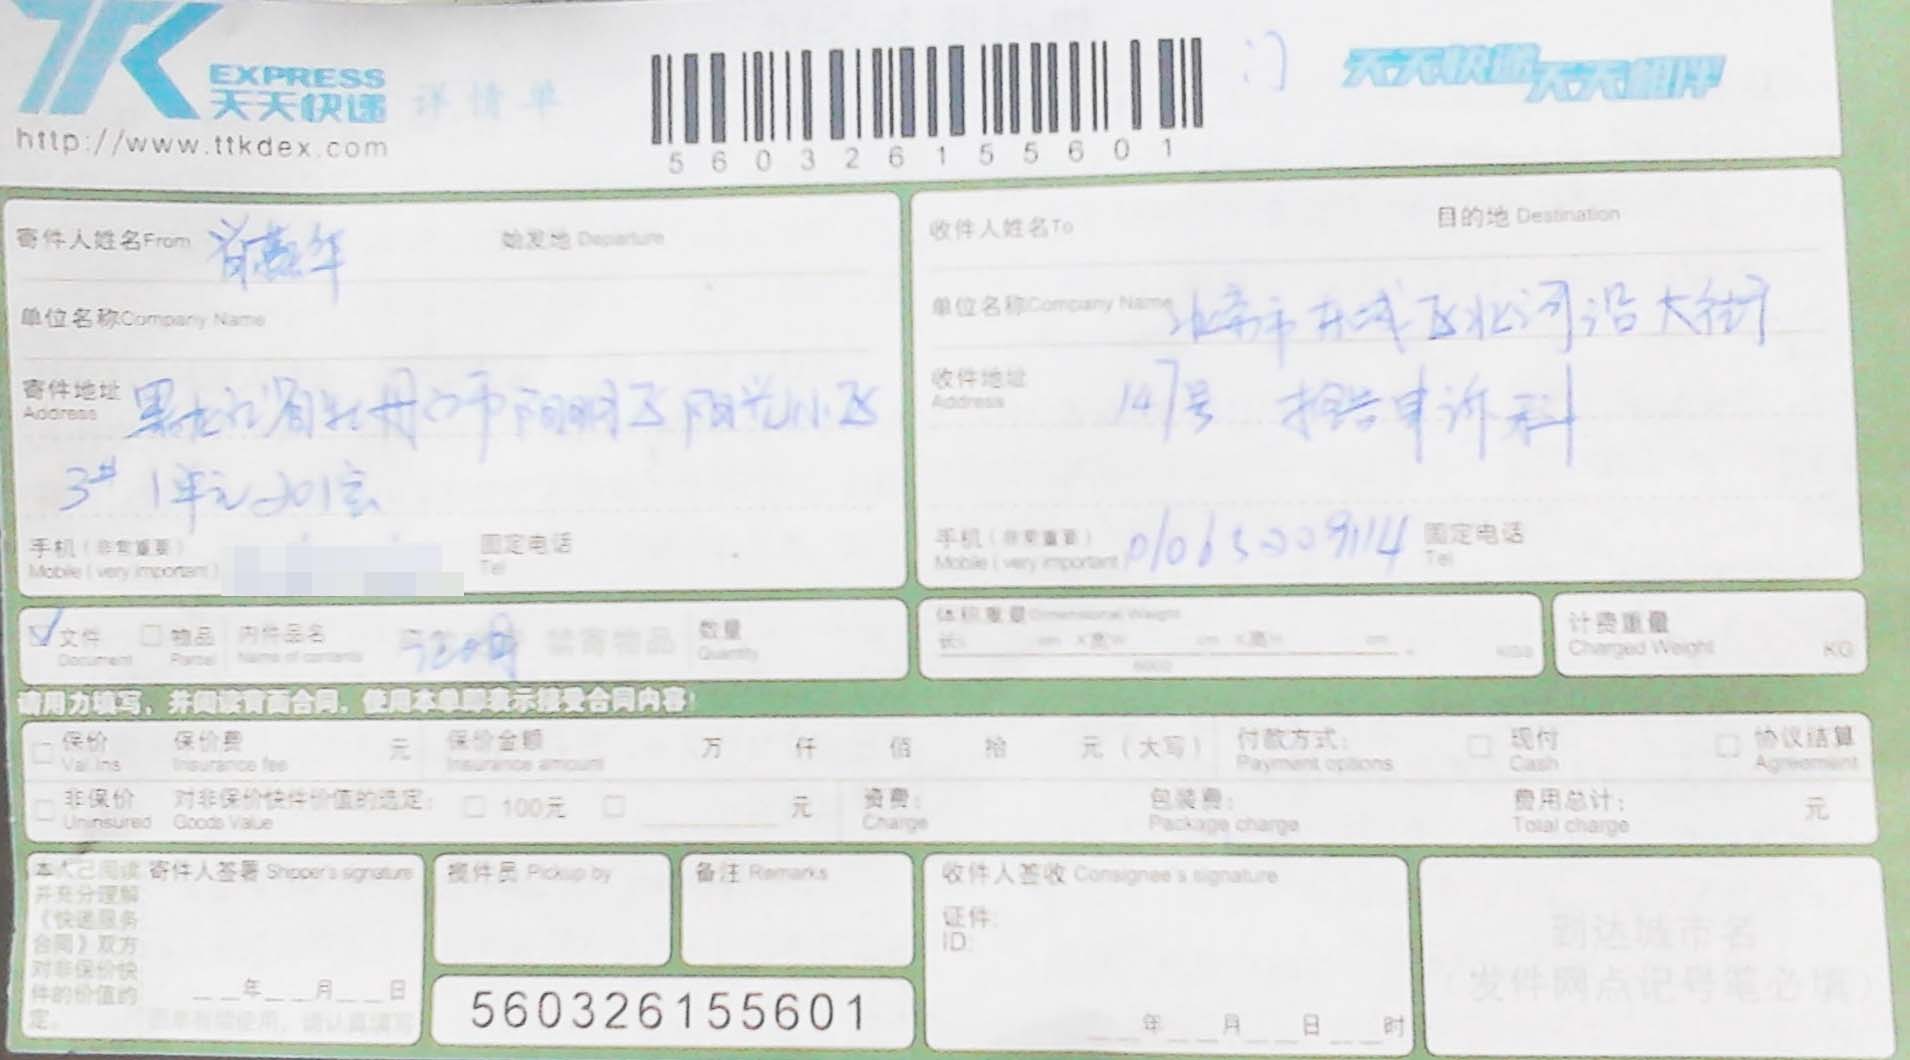 TK EXPRESS
天天快递 详情单
http://www.ttkdex.com
560326155601
天天快递 天天相伴
寄件人姓名From 始发地 Departure
单位名称Company Name
寄件地址 Address 黑龙江省牡丹江市阳明区阳光小区
3# 1单元201室
手机(非常重要) 固定电话
Mobile(very important) Tel
收件人姓名To 目的地 Destination
单位名称Company Name 北京市东城区北河沿大街
收件地址 Address 147号 控告申诉科
手机(非常重要) 01065209114 固定电话
Mobile(very important) Tel
文件 物品 内件品名 禁寄物品 数量
Document Parcel Name of contents Quantity
体积重量Dimensional Weight
长L cm X宽W cm X高H cm
6000 KGS
计费重量
Charged Weight KG
请用力填写,并阅读背面合同,使用本单即表示接受合同内容!
保价 保价费 元 保价金额 万 仟 佰 拾 元(大写) 付款方式: 现付 协议结算
Val.Ins Insurance fee Insurance amount Payment options Cash Agreement
非保价 对非保价快件价值的选定: 100元 元 资费: 包装费: 费用总计: 元
Uninsured Goods Value Charge Package charge Total charge
本人已阅读
并充分理解
《快递服务
合同》双方
对非保价快
件的价值约
定。
寄件人签署 Shipper's signature
年 月 日
揽件员 Pickup by
备注 Remarks
560326155601
收件人签收 Consignee's signature
证件:
ID:
年 月 日 时
到达城市名
(发件网点记号笔必填)